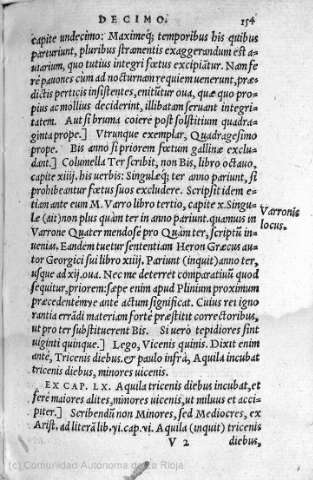 DECIMO. 154
capite undecimo: Maximeq; temporibus his quibus
parturiunt, pluribus stramentis exaggerandum est a-
uiarium, quo tutius integri fœtus excipiatur. Nam fe
rè pauones cùm ad nocturnam requiem uenerunt, præ-
dictis perticis insistentes, enitũtur oua, quæ quo pro-
pius ac mollius deciderint, illibatam seruant integri-
tatem. Aut si bruma coiere post solstitium quadra-
ginta prope.] Vtrunque exemplar, Quadragesimo
prope. Bis anno si priorem fœtum gallinæ exclu-
dant.] Columella Ter scribit, non Bis, libro octauo,
capite xiiij. his uerbis: Singulæq; ter anno pariunt, si
prohibeantur fœtus suos excludere. Scripsit idem e-
tiam ante eum M. Varro libro tertio, capite x. Singu-
læ (ait) non plus quàm ter in anno pariunt. quamuis in
Varrone Quater mendosè pro Quàm ter, scriptũ in-
uenias. Eandẽ tuetur sententiam Heron Græcus au-
tor Georgici sui libro xiiij. Pariunt (inquit) anno ter,
usque ad xij. oua. Nec me deterret comparatiuũ quod
sequitur, priorem: sæpe enim apud Plinium proximum
præcedentémve ante actum significat. Cuius rei igno
rantia errãdi materiam fortè præstitit correctoribus,
ut pro ter substituerent Bis. Si uerò tepidiores sint
uiginti quinque.] Lego, Vicenis quinis. Dixit enim
antè, Tricenis diebus. & paulo infrà, Aquila incubat
tricenis diebus, minores uicenis.
EX CAP. LX. Aquila tricenis diebus incubat, et
ferè maiores alites, minores uicenis, ut miluus et acci-
piter.] Scribendũ non Minores, sed Mediocres, ex
Arist. ad literã lib. vi. cap. vi. Aquila (inquit) tricenis
V 2 diebus,
Varronis
locus.
(c) Comunidad Autonoma de La Rioja